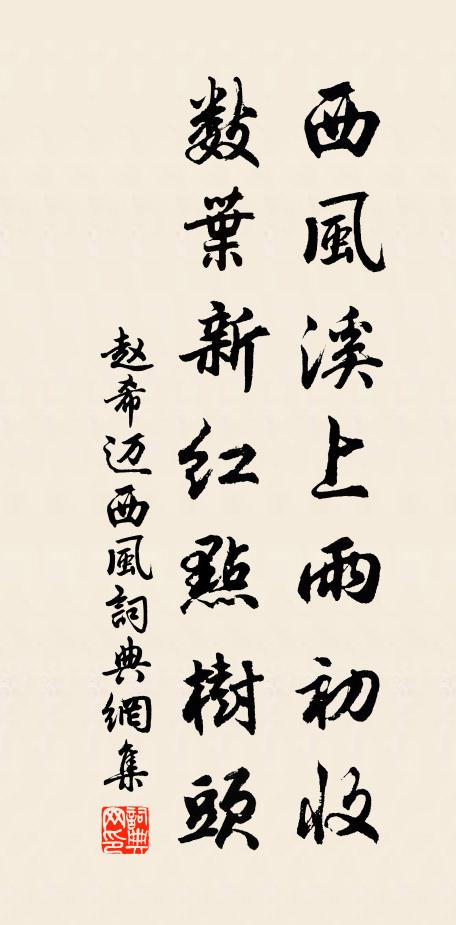 西風溪上雨初收
數葉新紅點樹頭
赵希迈西風詞典網集
詞典网印